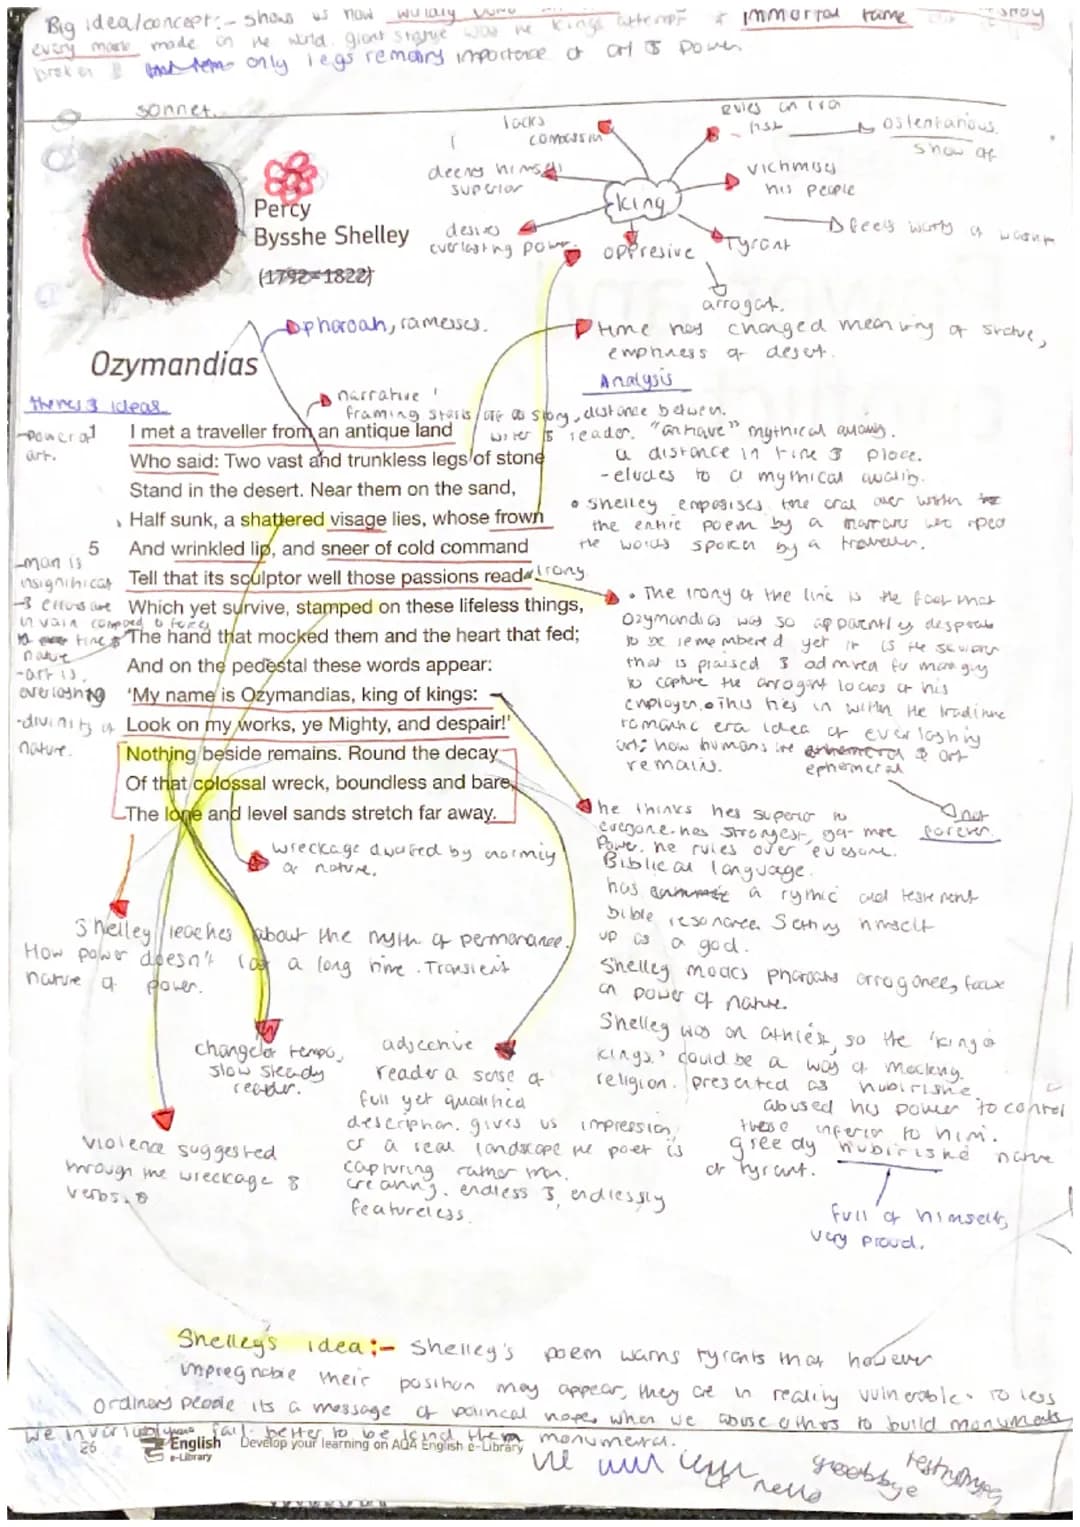 Big idea/concept:- shows us how
King's attempt immortal fame
every mark made in the world. giant statue was the
broken & only legs remain, importance of art & power
sonnet.
lacks
compassion
deems himself
superior
desires
everlasting power.
king
oppresive
Tyrant
arrogant.
rules
fist
ostentatious
show of
victimises
his people
feels
Percy
Bysshe Shelley
(1792–1822)
pharoah, ramesses.
time has changed meaning of statue,
emptiness of desert.
Ozymandias
Analysis
theres 3 ideas
narrative
framing starts off as story, distance between
writer & reader. mythical quality.
a distance in time & place.
- eludes to a mythical quality.
-power of
art.
1 I met a traveller from an antique land
Who said: Two vast and trunkless legs of stone
Stand in the desert. Near them on the sand,
Half sunk, a shattered visage lies, whose frown
5 And wrinkled lip, and sneer of cold command
Tell that its sculptor well those passions read
Which yet survive, stamped on these lifeless things,
The hand that mocked them and the heart that fed;
And on the pedestal these words appear:
'My name is Ozymandias, king of kings:
Look on my works, ye Mighty, and despair!'
Nothing beside remains. Round the decay
Of that colossal wreck, boundless and bare,
The lone and level sands stretch far away.
-man is
insignificat
& efforts are
in vain compared to
time &
nature
-art is
overlasting
-divinity of
nature.
• Shelley
the entire poem by a
the words spoken by a traveller.
irony
• The irony of the line is the fact that
Ozymandias was so apparently desperate
to be remembered yet it is the
that is praised & admired for managing
to capture the arrogant looks of his
employer. • This ties in within the
romantic era idea of everlasting
art; how humans are & art
remains. ephemeral
not
forever.
he thinks hes superior to
everyone. has strongest,
power. he rules over everyone.
Biblical language.
has a old testement
bible resonance. Setting himself
up as a god.
Shelley mocks pharoahs arrogance, focus
on power of nature.
Shelley was an athiest, so the 'king of
kings' could be a way of mocking
religion. presented as hubirishe
abused his power to control
those inferior to him.
greedy hubirishe nature
of tyrant.
full of himself,
very proud.
wreckage dwarfed by enormity
of nature.
Shelley teaches about the myth of permanance.
How power doesn't last a long time. Transient
nature of power.
change of tempo,
slow steady
reader.
adjective
reader a sense of
full yet qualified
description. gives us impression
of a real landscape the poet is
capturing rather than
creating. endless & endlessly
featureless.
violence suggested
through the wreckage &
verbs.
Shelley's idea:- Shelley's poem warns tyrants that however
impregnable their position may appear, they are in reality vulnerable. To less
ordinary people its a message of political hope, when we abuse others to build monuments
we invariably fail. better to be kind than monumental.
26
English
e-Library
Develop your learning on AQA English e-Library
hello
goodbye